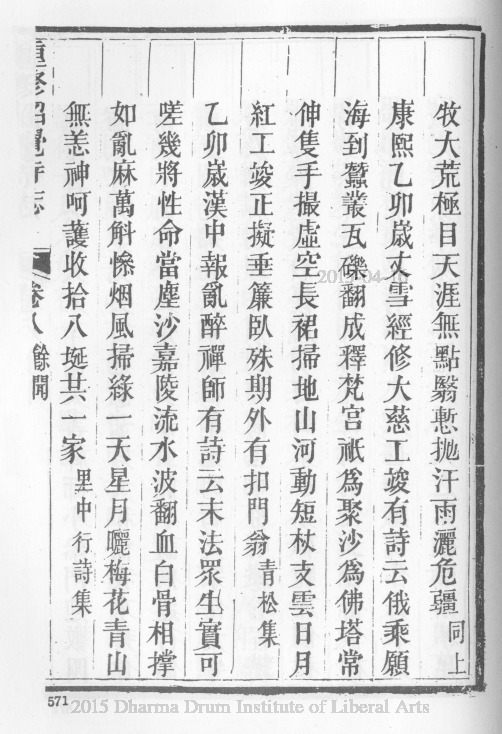 牧大荒極目天涯無點翳慙拋汗雨灑危疆同上
康熙乙卯歲丈雪經修大慈工竣有詩云俄乘願
海到蠶叢瓦礫翻成釋梵宮祇為聚沙為佛塔常
伸隻手撮虛空長裙掃地山河動短杖支雲日月
紅工竣正擬垂簾臥殊期外有扣門翁青松集
乙卯歲漢中報亂醉禪師有詩云末法眾生實可
嗟幾將性命當塵沙嘉陵流水波翻血白骨相撐
如亂麻萬斛慘烟風掃綠一天星月曬梅花青山
無恙神呵護收拾八埏共一家里中行詩集
重修昭覺寺志 卷八 餘聞
571
2015-04-10
2015 Dharma Drum Institute of Liberal Arts